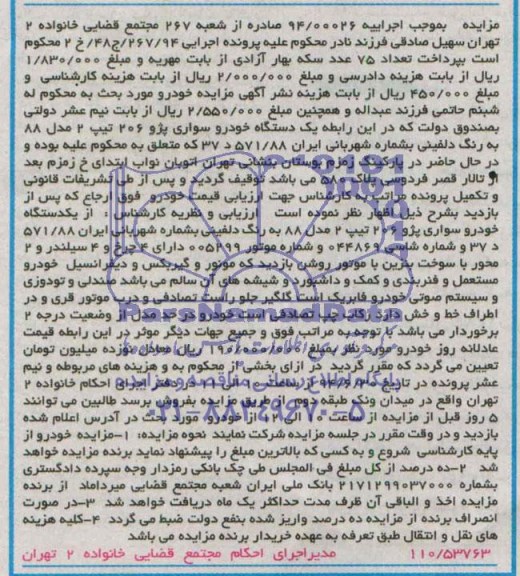 مزایده   بموجب اجراییه ۹۴/۰۰۰۲۶ صادره از شعبه ۲۶۷ مجتمع قضایی خانواده ۲
تهران سهیل صادقی فرزند نادر محکوم علیه پرونده اجرایی ۲۶۷/۹۴/ج۴۸/خ ۲ محکوم
است بپرداخت تعداد ۷۵ عدد سکه بهار آزادی از بابت مهریه و مبلغ ۱/۸۳۰/۰۰۰
ریال از بابت هزینه دادرسی و مبلغ ۲/۰۰۰/۰۰۰ ریال از بابت هزینه کارشناسی و
مبلغ ۴۵۰/۰۰۰ ریال از بابت هزینه نشر آگهی مزایده خودرو مورد بحث به محکوم له
شبنم حاتمی فرزند عبداله و همچنین مبلغ ۲/۵۵۰/۰۰۰ ریال از بابت نیم عشر دولتی
بصندوق دولت که در این رابطه یک دستگاه خودرو سواری پژو ۲۰۶ تیپ ۲ مدل ۸۸
به رنگ دلفینی بشماره شهربانی ایران ۵۷۱/۸۸ د ۳۷ که متعلق به محکوم علیه بوده و
در حال حاضر در پارکینگ زمزم بوستان بنشانی تهران اتوبان نواب ابتدای خ زمزم بعد
از تالار قصر فردوسی پلاک ۵۸۰ می باشد توقیف گردید و پس از طی تشریفات قانونی
و تکمیل پرونده مراتب به کارشناس جهت ارزیابی قیمت خودرو فوق ارجاع که پس از
بازدید بشرح ذیل اظهار نظر نموده است   ارزیابی و نظریه کارشناس : از یکدستگاه
خودرو سواری پژو ۲۰۶ تیپ ۲ مدل ۸۸ به رنگ دلفینی بشماره شهربانی ایران ۵۷۱/۸۸
د ۳۷ و شماره شاسی ۰۴۴۸۶۹ و شماره موتور ۰۰۵۲۹۹ دارای ۴ چرخ و ۴ سیلندر و ۲
محور با سوخت بنزین با موتور روشن بازدید که موتور و گیربکس و دیفرانسیل خودرو
مستعمل و فنربندی و کمک و داشبورد و شیشه های آن سالم می باشد صندلی و تودوزی
و سیستم صوتی خودرو فابریک است گلگیر جلو راست تصادفی و درب موتور قری و در
اطراف خط و خش دارد رکاب چپ تصادفی است خودرو در حد مدل از وضعیت درجه ۲
برخوردار می باشد با توجه به مراتب فوق و جمیع جهات دیگر موثر در این رابطه قیمت
عادلانه روز خودرو مورد نظر بمبلغ ۱۹۰/۰۰۰/۰۰۰ ریال معادل نوزده میلیون تومان
تعیین می گردد که مقرر گردید در ازای بخشی از محکوم به و هزینه های مربوطه و نیم
عشر پرونده در تاریخ ساعت در محل دفتر اجرای احکام خانواده ۲
تهران واقع در میدان ونک طبقه دوم از طریق مزایده بفروش برسد طالبین می توانند
۵ روز قبل از مزایده از ساعت ۱۰ الی ۱۲ از خودرو مورد بحث در آدرس اعلام شده
بازدید و در وقت مقرر در جلسه مزایده شرکت نمایند نحوه مزایده: ۱-مزایده خودرو از
پایه کارشناسی شروع و به کسی که بالاترین مبلغ را پیشنهاد نماید برنده مزایده خواهد
شد ۲-ده درصد از کل مبلغ فی المجلس طی چک بانکی رمزدار وجه سپرده دادگستری
بشماره ۲۱۷۱۲۹۹۰۳۷۰۰۰ بانک ملی ایران شعبه مجتمع قضایی میرداماد از برنده
مزایده اخذ و الباقی آن ظرف مدت حداکثر یک ماه دریافت خواهد شد ۳-در صورت
انصراف برنده از مزایده ده درصد واریز شده بنفع دولت ضبط می گردد ۴-کلیه هزینه
های نقل و انتقال طبق تعرفه به عهده خریدار برنده مزایده می باشد
۱۱۰/۵۳۷۶۳   مدیراجرای احکام مجتمع قضایی خانواده ۲ تهران
پایگاه اطلاع رسانی مناقصه و مزایده
۰۲۱-۸۸۳۴۹۶۷۰-۵